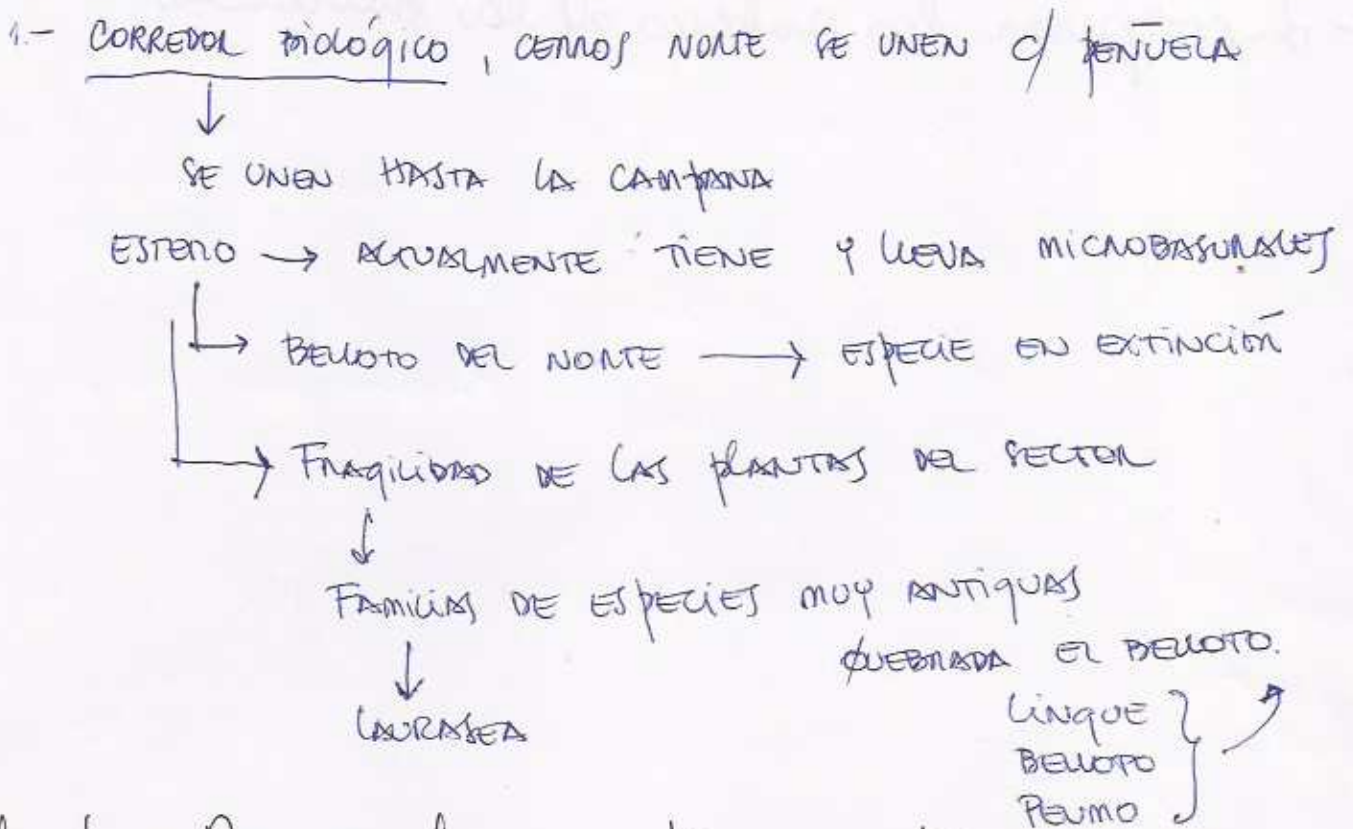 1.- CORREDOR BIOLÓGICO, CERROS NORTE SE UNEN C/ PEÑUELA
↓
SE UNEN HASTA LA CAMPANA
ESTERO → ACTUALMENTE TIENE Y LLEVA MICROBASURALES
→ BELLOTO DEL NORTE → ESPECIE EN EXTINCIÓN
→ FRAGILIDAD DE LAS PLANTAS DEL SECTOR
↓
FAMILIAS DE ESPECIES MUY ANTIGUAS
↓
LAURASEA
QUEBRADA EL BELLOTO.
LINGUE
BELLOTO
PEUMO